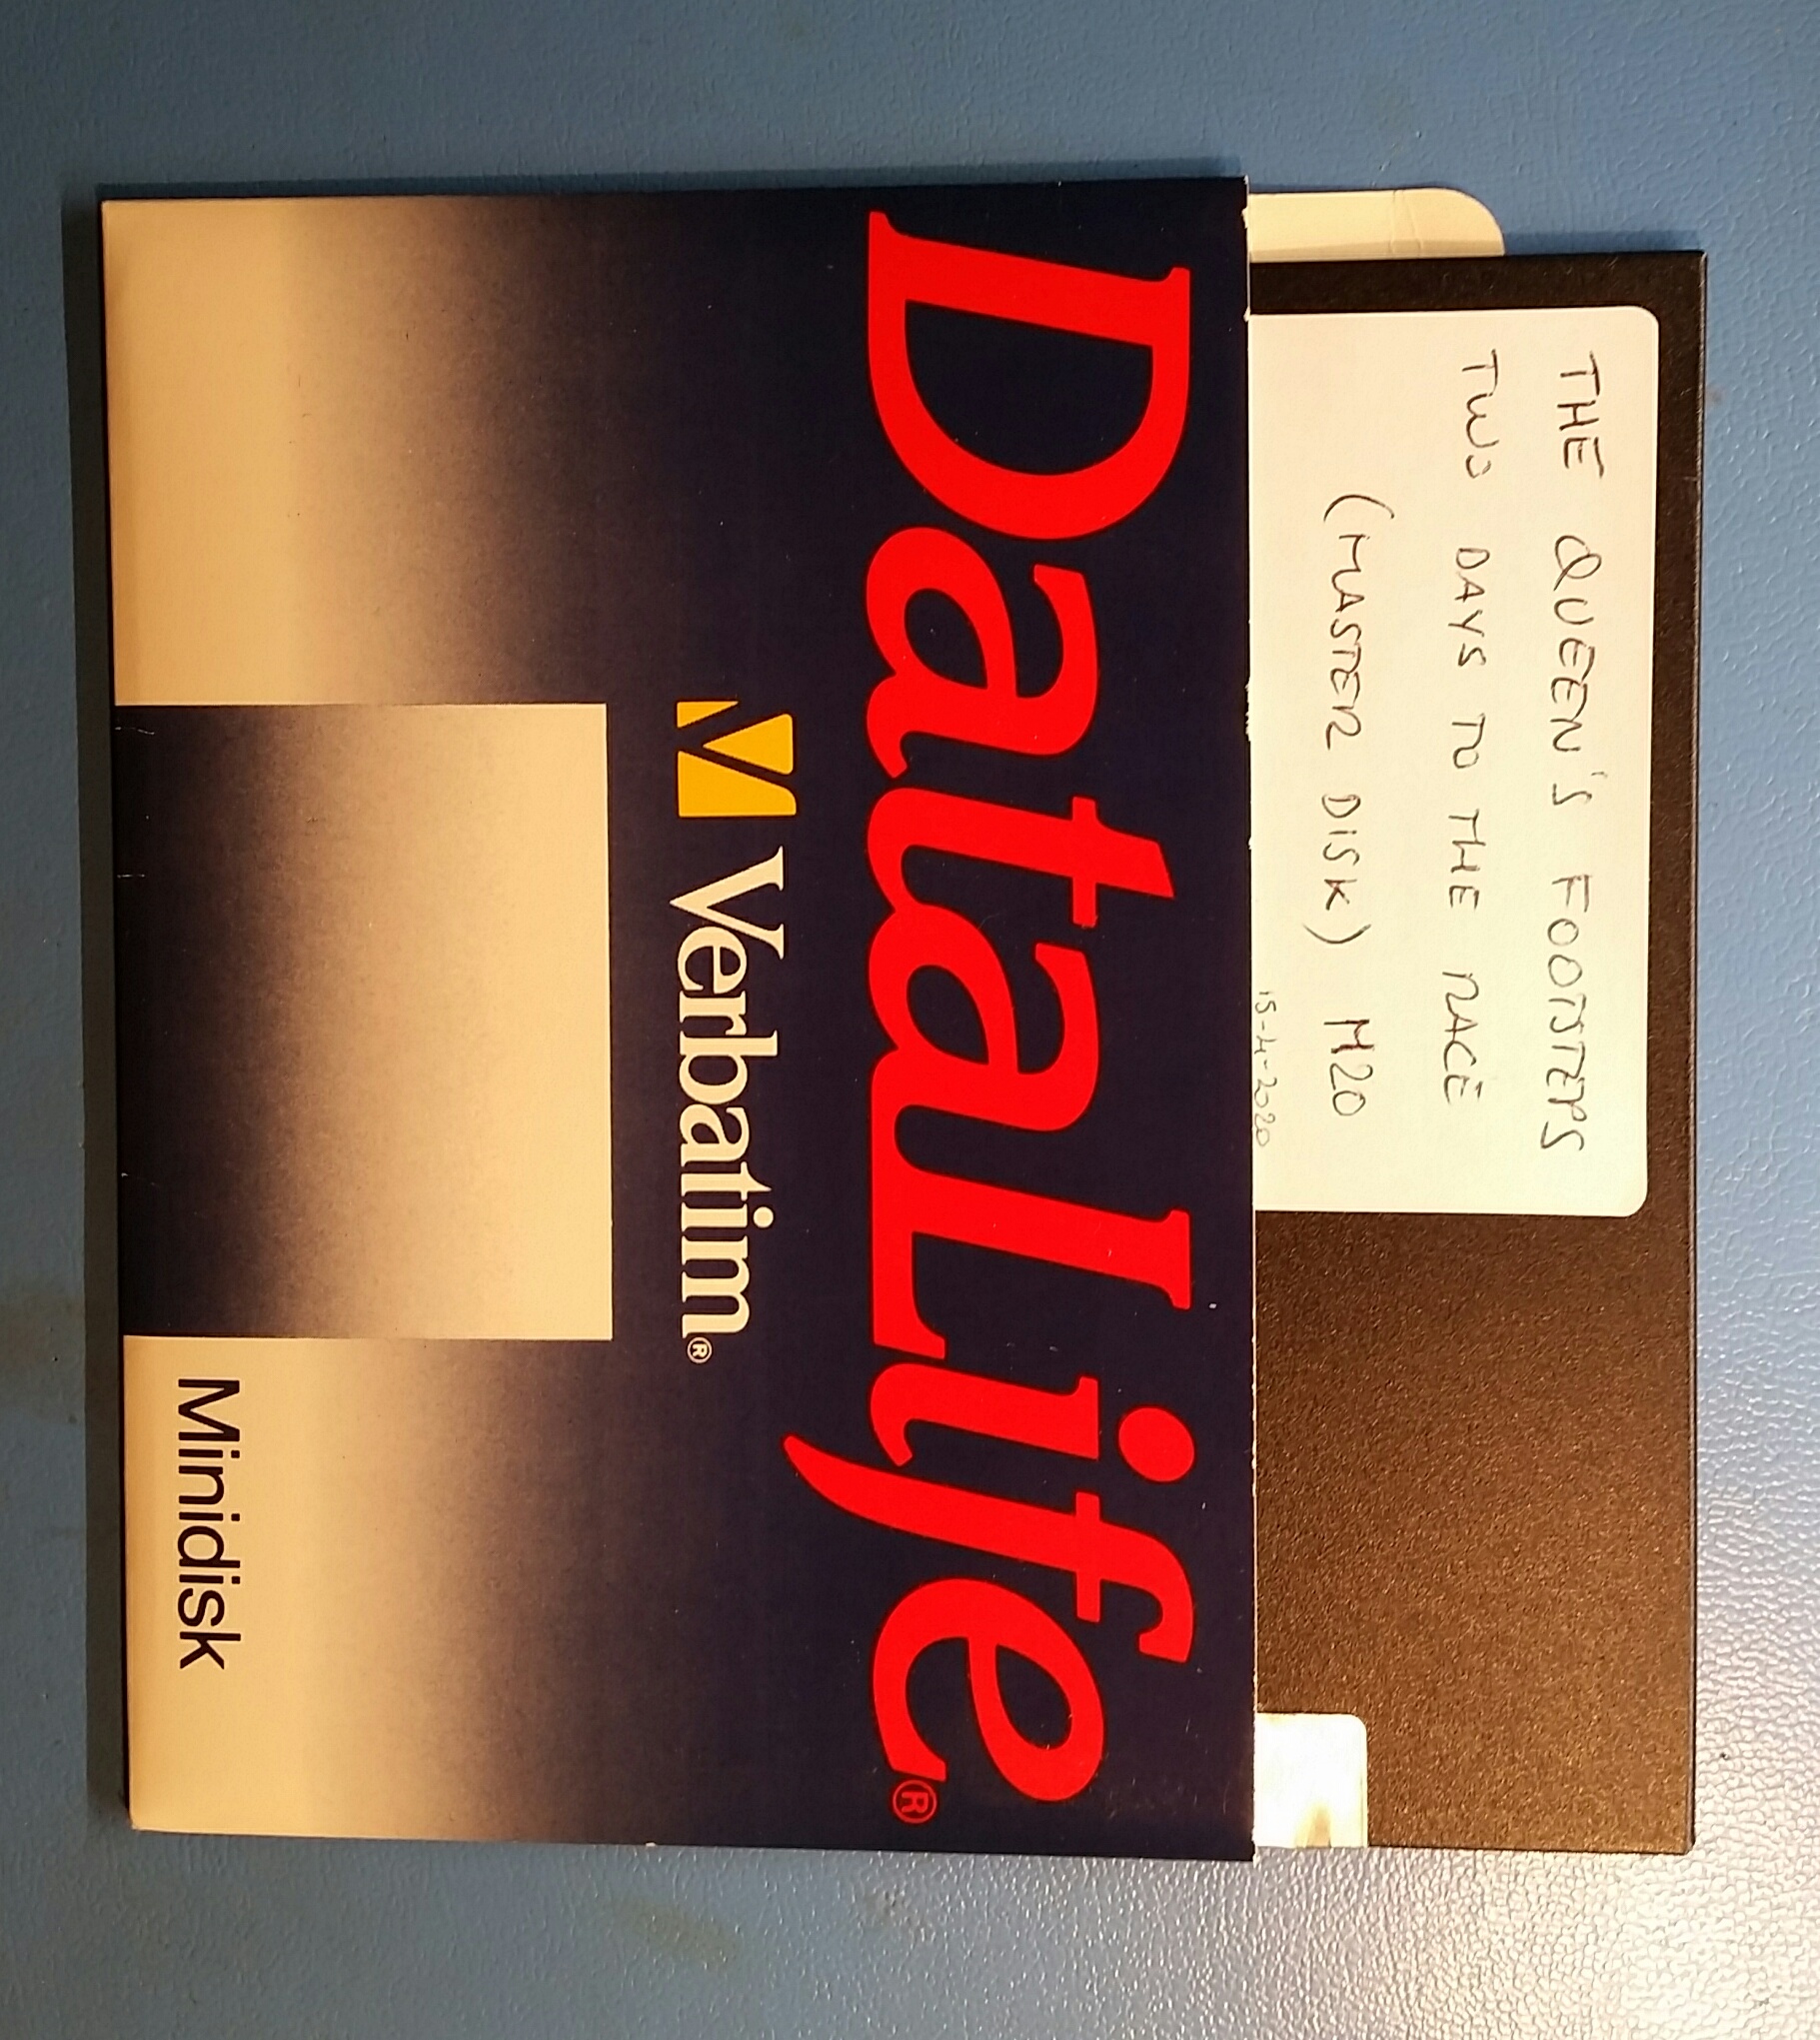 THE QUEEN'S FOOTSTEPS
TWO DAYS TO THE RACE
(MASTER DISK) M20
15-4-2020
DataLife®
Verbatim®
Minidisk